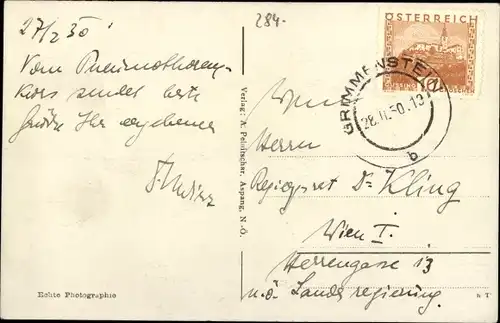 27/2 30
Vom Pneumothorax-
kurs sendet beste
Grüße Ihr ergebener
284.
Verlag: A. Peinitscher, Aspang, N.-Ö.
Echte Photographie
ÖSTERREICH
10
GROSCHEN
GRIMMENSTEIN
28.II.30.13
b
Wien
Herrn
Regiegsrat Dr Kling
Wien I.
Herrengasse 13
n.ö. Landesregierung.
N T